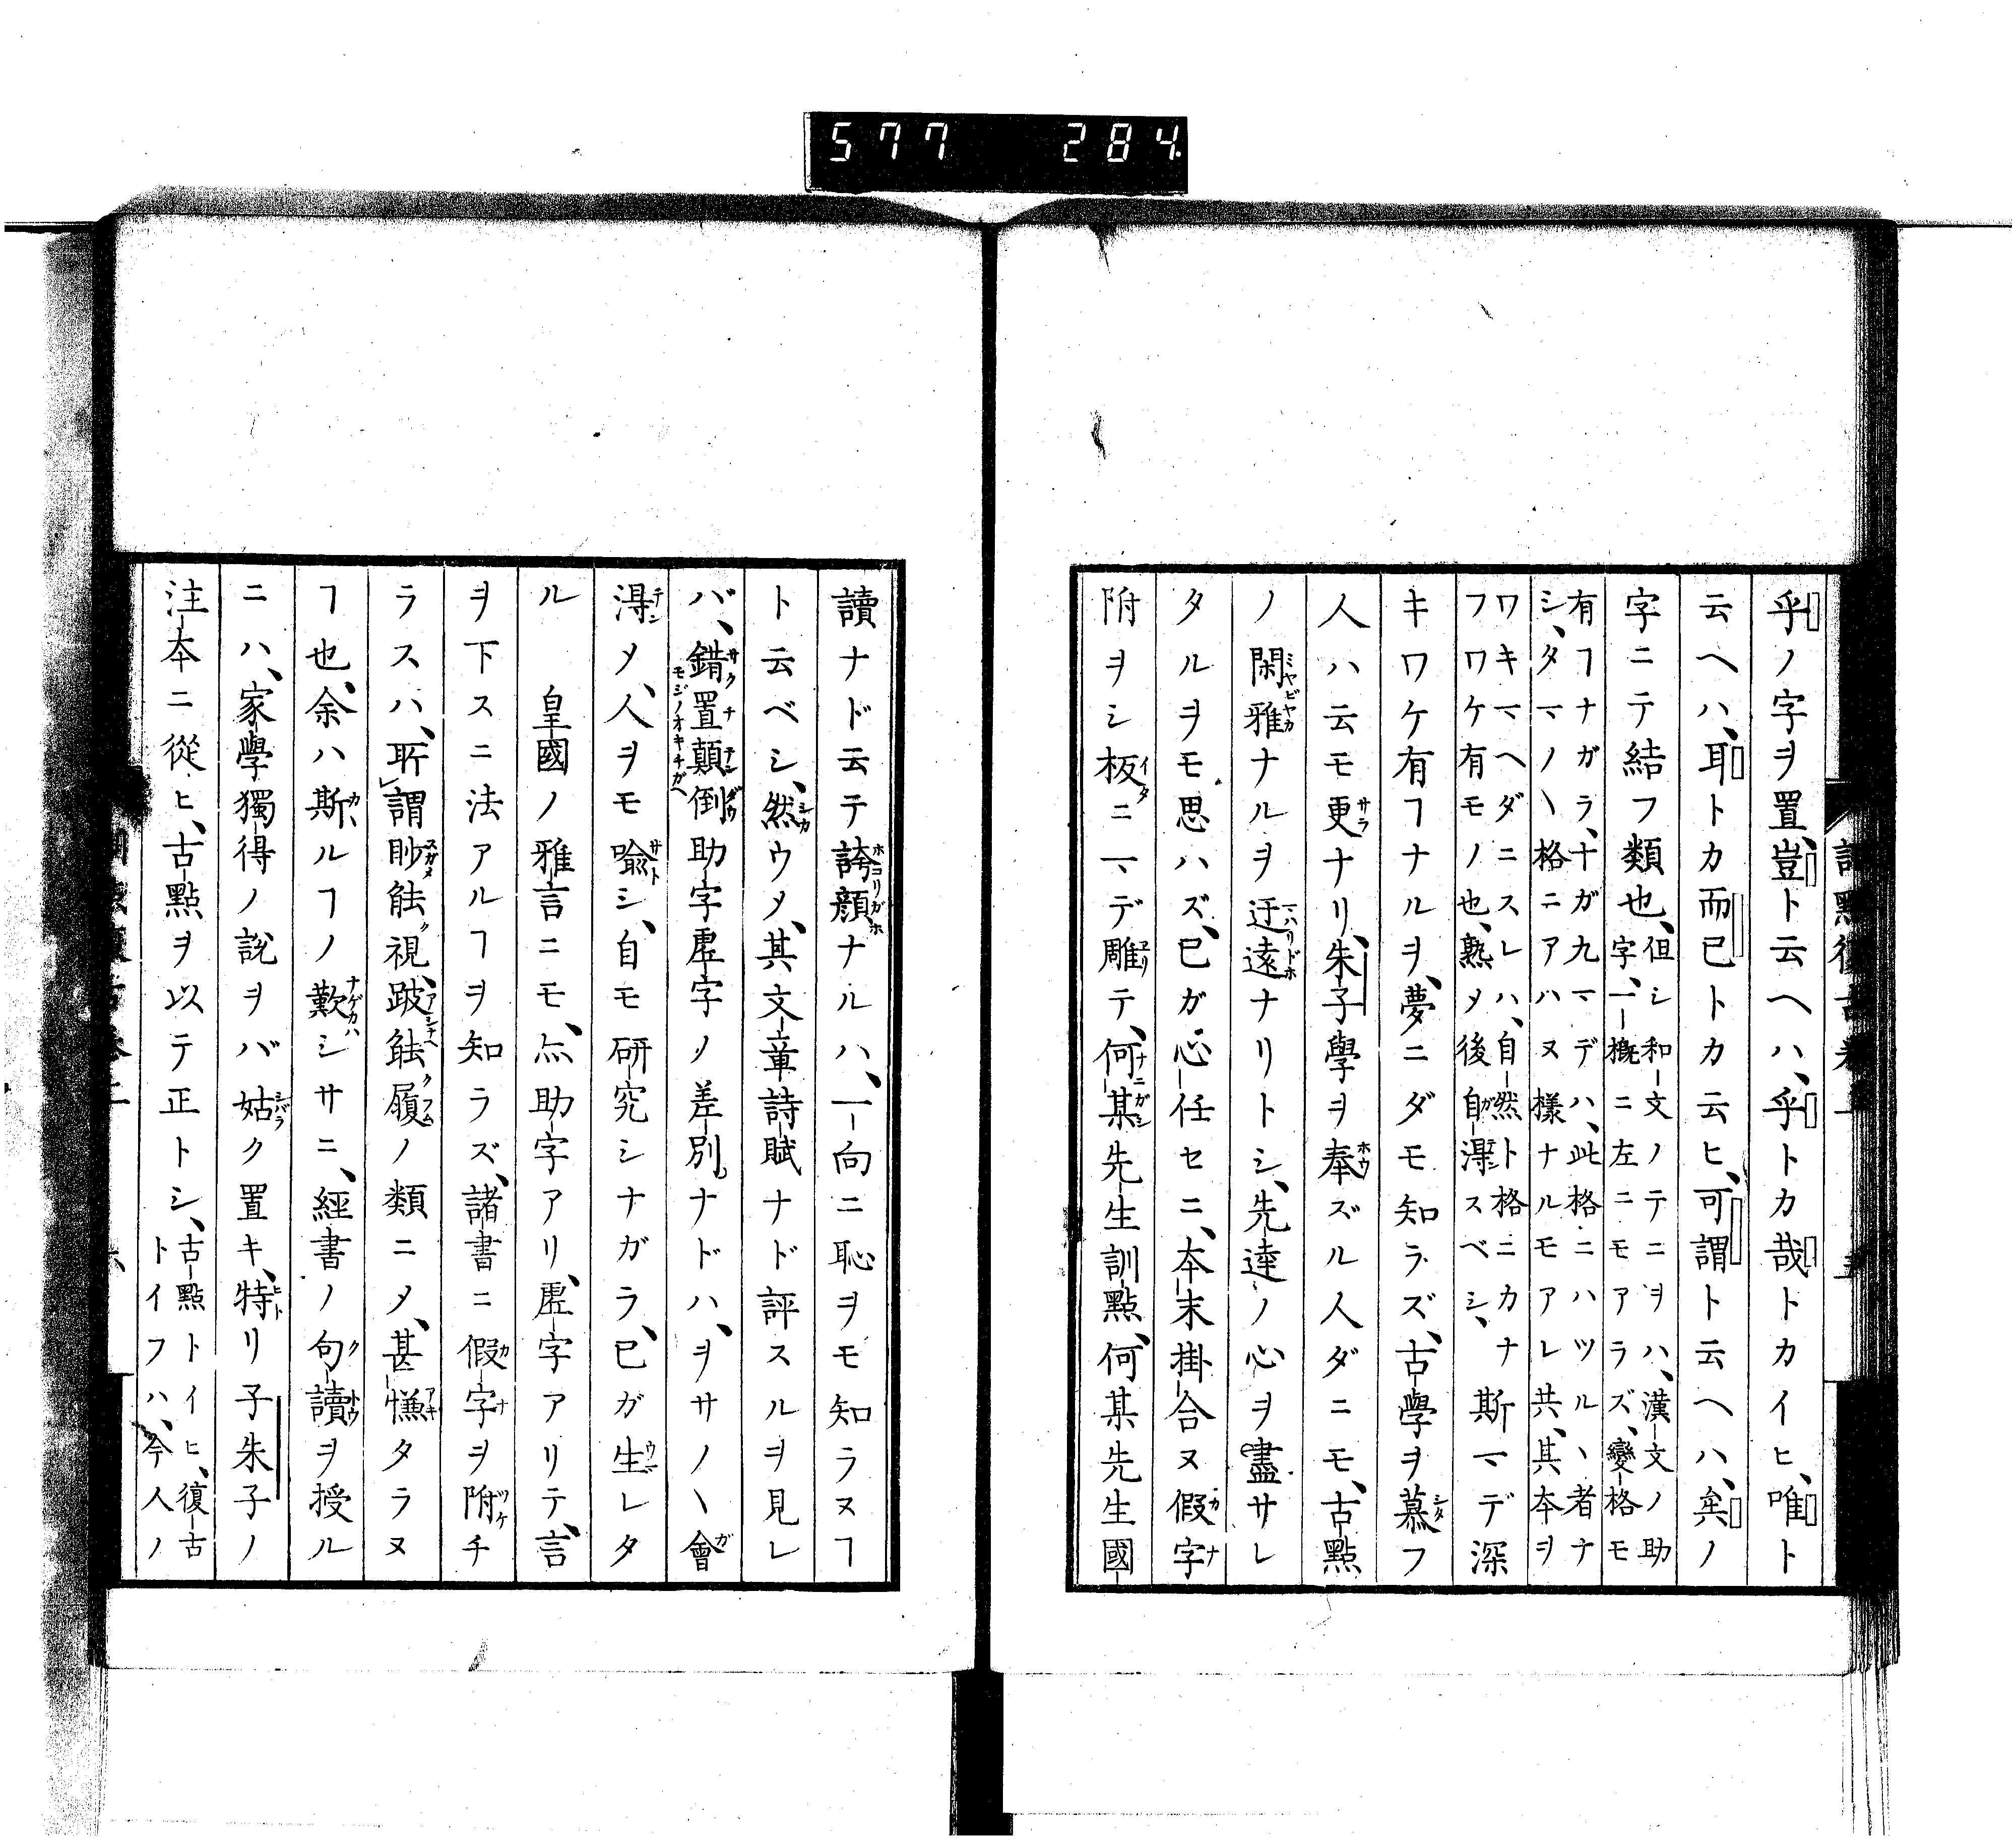 577 284.
乎ノ字ヲ置、豈ト云ヘハ、乎トカ哉トカイヒ、唯ト
云ヘハ、耳トカ而已トカ云ヒ、可謂ト云ヘハ、矣ノ
字ニテ結フ類也、但シ和文ノテニヲハ、漢文ノ助
字、一概ニ左ニモアラズ、變格モ
有ヿナガラ、十ガ九マデハ、此格ニハツルヽ者ナ
シ、タマノヽ格ニアハヌ樣ナルモアレ共、其本ヲ
ワキマヘダニスレハ、自然ト格ニカナ
フワケ有モノ也、熟メ後自得スベシ、
斯マデ深
キワケ有ヿナルヲ、夢ニダモ知ラズ、古學ヲ慕フ
人ハ云モ更ナリ、朱子學ヲ奉ズル人ダニモ、古點
ノ閑雅ナルヲ迂遠ナリトシ、先達ノ心ヲ盡サレ
タルヲモ思ハズ、己ガ心任セニ、本末掛合ヌ假字
附ヲシ板ニマデ雕テ、何某先生訓點、何某先生國
讀ナド云テ誇顔ナルハ、一向ニ恥ヲモ知ラヌヿ
ト云ベシ、然ウメ、其文章詩賦ナド評スルヲ見レ
バ、錯置顛倒助字虛字ノ差別ナドハ、ヲサノヽ會
得メ、人ヲモ喩シ、自モ研究シナガラ、己ガ生レタ
ル 皇國ノ雅言ニモ、亦助字アリ、虛字アリテ、言
ヲ下スニ法アルヿヲ知ラズ、諸書ニ假字ヲ附チ
ラスハ、所謂眇能視、跛能履ノ類ニメ、甚慊タラヌ
ヿ也、余ハ斯ルヿノ歎シサニ、經書ノ句讀ヲ授ル
ニハ、家學獨得ノ説ヲバ姑ク置キ、特リ子朱子ノ
注本ニ從ヒ、古點ヲ以テ正トシ、古點トイヒ、復古
トイフハ、今人ノ